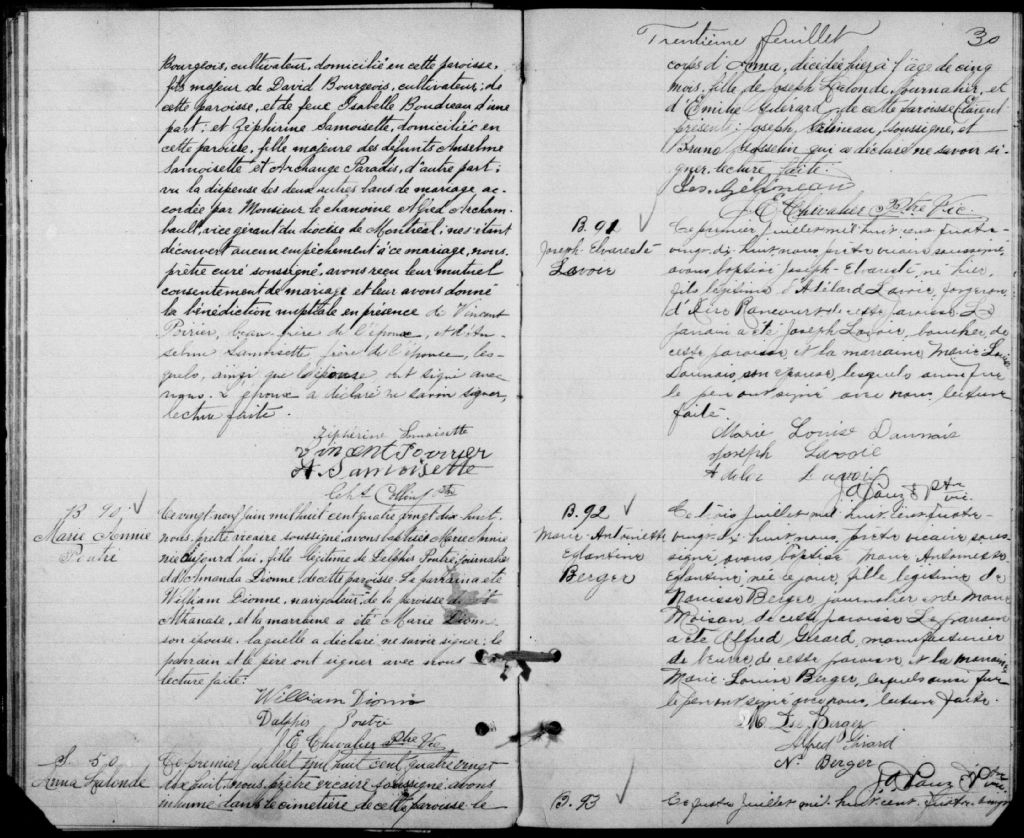 Bourgeois, cultivateur, domicilié en cette paroisse,
fils majeur de David Bourgeois, cultivateur, de
cette paroisse, et de feue Isabelle Boudreau d'une
part; et Zéphirine Samoisette, domiciliée en
cette paroisse, fille majeure des défunts Anselme
Samoisette et Archange Paradis, d'autre part;
vu la dispense des deux autres bans de mariage ac-
cordée par Monsieur le chanoine Alfred Archam-
bault, vice gérant du diocèse de Montréal; ne s'étant
découvert aucun empêchement à ce mariage, nous,
prêtre curé soussigné, avons reçu leur mutuel
consentement de mariage et leur avons donné
la bénédiction nuptiale en présence de Vincent
Poirier, beau frère de l'époux, et d'An-
selme Samoisette frère de l'épouse, les-
quels, ainsi que l'épouse ont signé avec
nous. L'époux a déclaré ne savoir signer,
lecture faite.
Zéphirine Samoisette
Vincent Poirier
A. Samoisette
Ptre
B 90.
Marie Annie
Poutré
Ce vingt neuf juin mil huit cent quatre vingt dix huit,
nous, prêtre vicaire soussigné, avons baptisé Marie Annie
née aujourd'hui, fille légitime de Delphis Poutré, journalier
et d'Amanda Dionne de cette paroisse. Le parrain a été
William Dionne, navigateur, de la paroisse de St
Athanase, et la marraine a été Marie Dionne
son épouse, laquelle a déclaré ne savoir signer; le
parrain et le père ont signer avec nous
lecture faite:
William Dionne
Dalphis Poutré
J. E. Chevalier Ptre Vic
S 50
Anna Lalonde
Ce premier juillet mil huit cent quatre vingt
dix huit, nous, prêtre vicaire soussigné, avons
inhumé dans le cimetière de cette paroisse le
Trentième feuillet 30
corps d'Anna, décédée hier à l'âge de cinq
mois, fille de Joseph Lalonde, journalier, et
d'Emilie de cette paroisse. Etaient
présents: Joseph Gélineau, soussigné, et
Bruno qui a déclaré ne savoir si-
gner, lecture faite.
Jos. Gélineau
J. E. Chevalier Ptre Vic.
B. 91
Joseph Elvareste
Lavoie
Ce premier juillet mil huit cent quatre-
vingt-dix huit nous, prêtre vicaire soussigné,
avons baptisé Joseph-Elvariste, né hier,
fils légitime d'Adélard Lavoie, forgeron,
et d' Rancourt de cette paroisse. Le
parrain a été Joseph Lavoie, boucher, de
cette paroisse, et la marraine Marie-Louise
Daunais, son épouse, lesquels ainsi que
le père ont signé avec nous, lecture
faite.
Marie Louise Daunais
Joseph Lavoie
Adélar Lavoie
Ptre
vic.
B. 92
Marie-Antoinette
Eglantine
Berger
Ce trois juillet mil huit cent quatre-
vingt-dix huit nous, prêtre vicaire sous-
signé, avons baptisé Marie Antoinette
Eglantine née ce jour, fille légitime de
Narcisse Berger journalier et de Marie
Moisan, de cette paroisse. Le parrain
a été Alfred Girard, manufacturier
de beurre, de cette paroisse, et la marraine
Marie-Louise Berger, lesquels ainsi que
le père ont signé avec nous, lecture faite.
M. L. Berger
Alfred Girard
N. Berger
Ptre
vic.
B. 93
Ce quatre juillet mil huit cent quatre-vingt